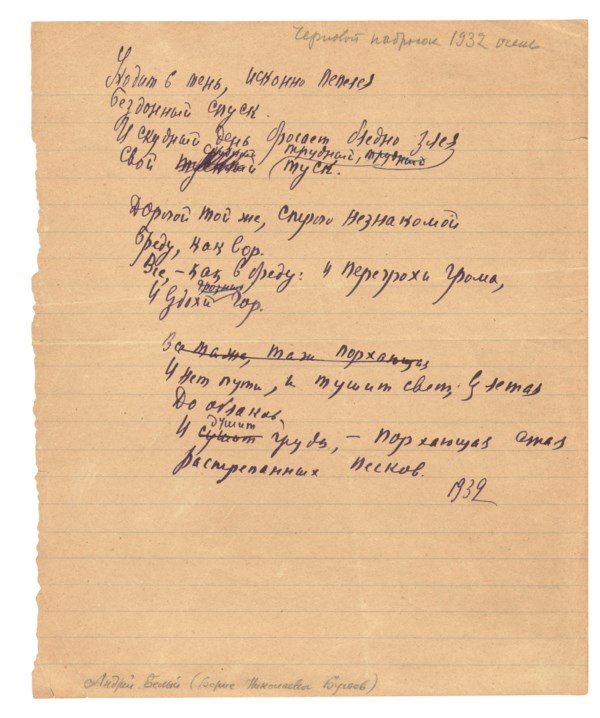 Черновой набросок 1932 осень
Уходит в тень, исконно пепля
Бездонный спуск.
И скудный день бросает бледно злея
трудный, трудный
Свой туск.
Дорогой той же, строго незнакомой
Бреду, как вор.
Все, – как в бреду: и перегрохи грома,
грозных
И вздохи гор.
Все та же, та ж порхающая
И нет пути, и тушит свет, взлетая
До облаков,
душит
И сушит грудь, – порхающая стая
Растрепанных песков.
1932
Андрей Белый (Борис Николаевич Бугаев)